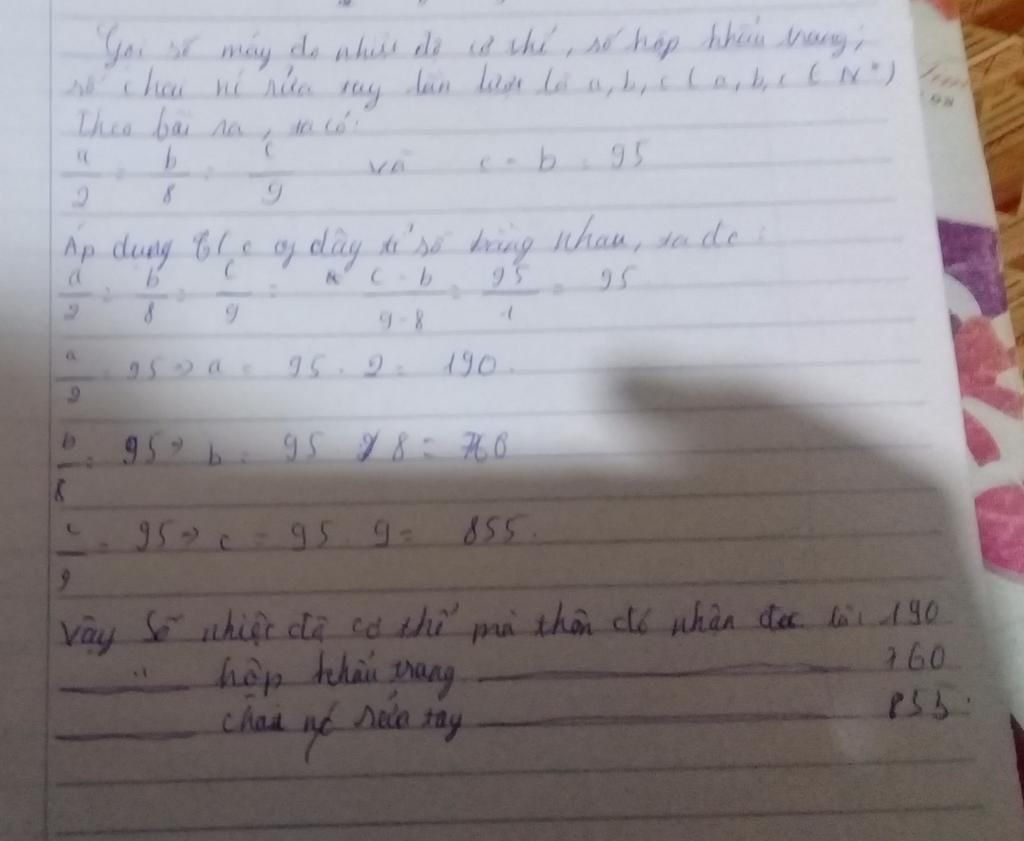 Gọi số máy đo nhiệt độ cơ thể, số hộp khẩu trang,
số chai nc rửa tay lần lượt là a, b, c (a, b, c ∈ N*)
Theo bài ra, ta có:
a/2 = b/8 = c/9 và c - b = 95
Áp dụng t/c of dãy tỉ số bằng nhau, ta dc:
a/2 = b/8 = c/9 = c - b/9 - 8 = 95/1 = 95
a/2 = 95 => a = 95 . 2 = 190.
b/8 = 95 => b = 95 . 8 = 760
c/9 = 95 => c = 95 . 9 = 855.
Vậy Số nhiệt độ cơ thể mà thôn đó nhận đưc là: 190
" hộp khẩu trang 760
chai nc rửa tay 855.